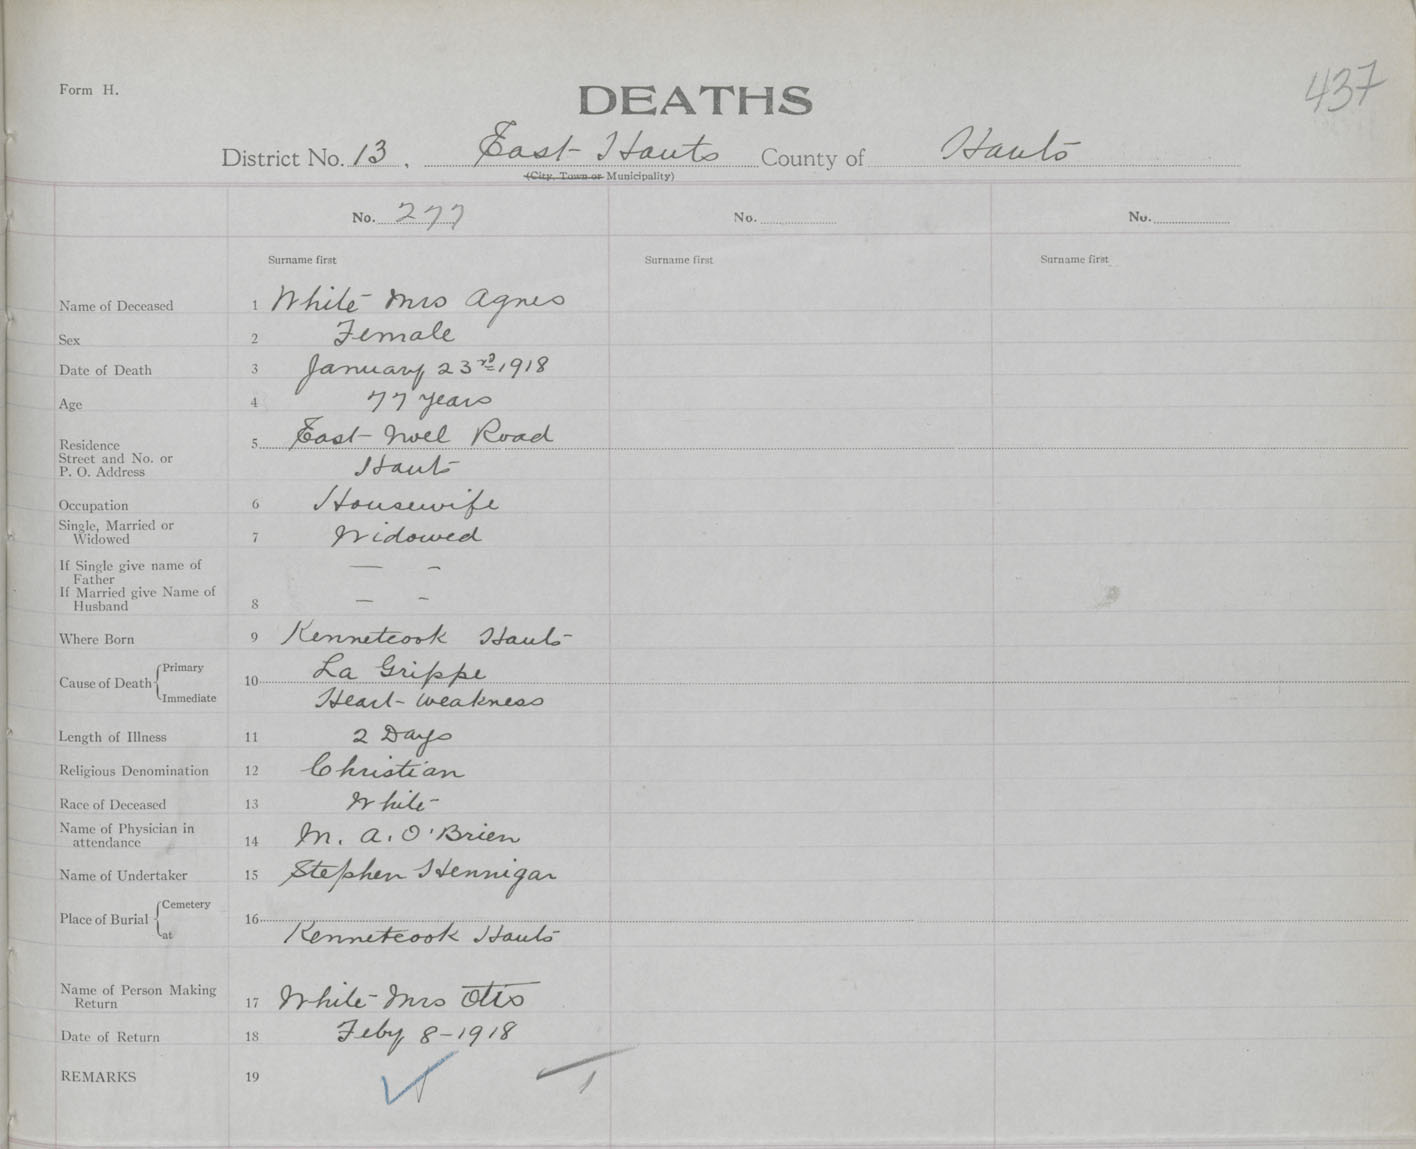 Form H.
DEATHS
437
District No. 13. East Hants County of Hants
(City, Town or Municipality)
No. 277 No. No.
Surname first Surname first Surname first
Name of Deceased 1 White Mrs Agnes
Sex 2 Female
Date of Death 3 January 23rd 1918
Age 4 77 years
Residence 5 East Noel Road
Street and No. or
P. O. Address Hants
Occupation 6 Housewife
Single, Married or
Widowed 7 Widowed
If Single give name of — -
Father
If Married give Name of — -
Husband 8
Where Born 9 Kennetcook Hants
Cause of Death Primary 10 La Grippe
Immediate Heart weakness
Length of Illness 11 2 Days
Religious Denomination 12 Christian
Race of Deceased 13 White
Name of Physician in
attendance 14 M. A. O'Brien
Name of Undertaker 15 Stephen Hennigar
Place of Burial Cemetery 16
at Kennetcook Hants
Name of Person Making
Return 17 White Mrs Otis
Date of Return 18 Feby 8-1918
REMARKS 19